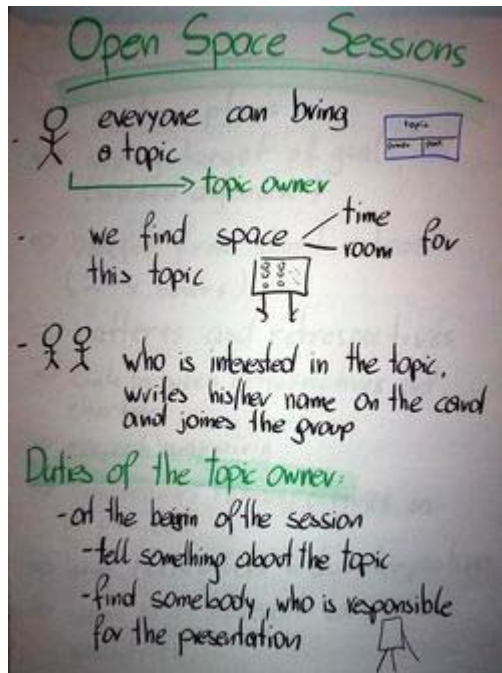 Open Space Sessions
- everyone can bring
a topic
topic
topic owner
time
- we find space room for
this topic
- who is interested in the topic,
writes his/her name on the card
and joines the group
Duties of the topic owner:
- at the begin of the session
- tell something about the topic
- find somebody, who is responsible
for the presentation